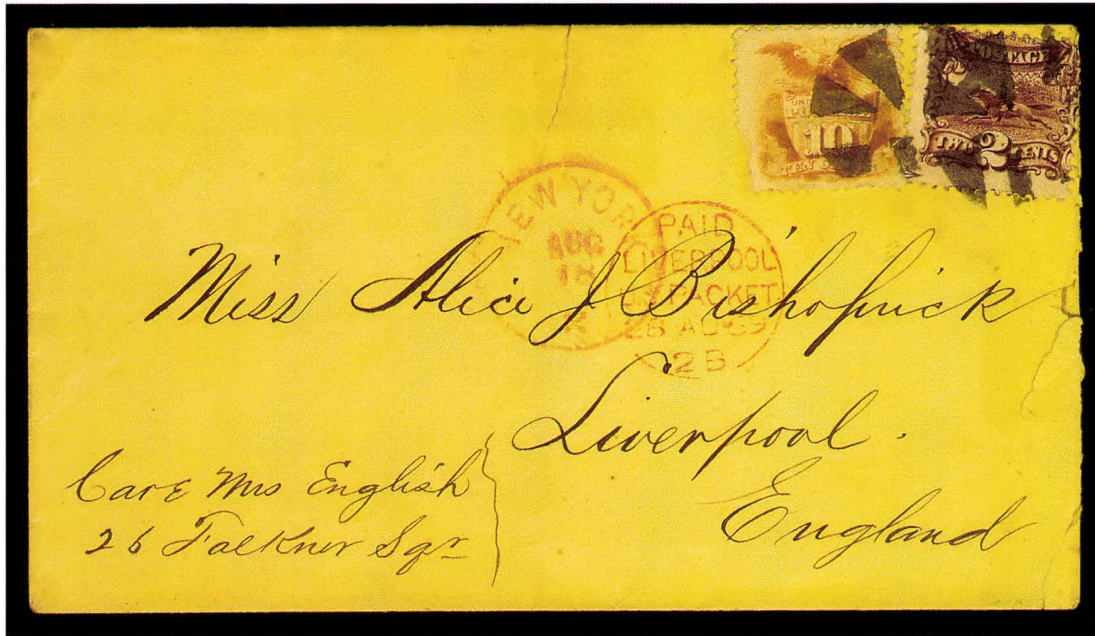 POSTAGE
10
TWO 2 CENTS
NEW YORK
AUG
18
PAID
LIVERPOOL
U.S. PACKET
28 AU 69
2B
Miss Alice J Bishoprick
Liverpool.
England
Care Mrs English
26 Falkner Sqr